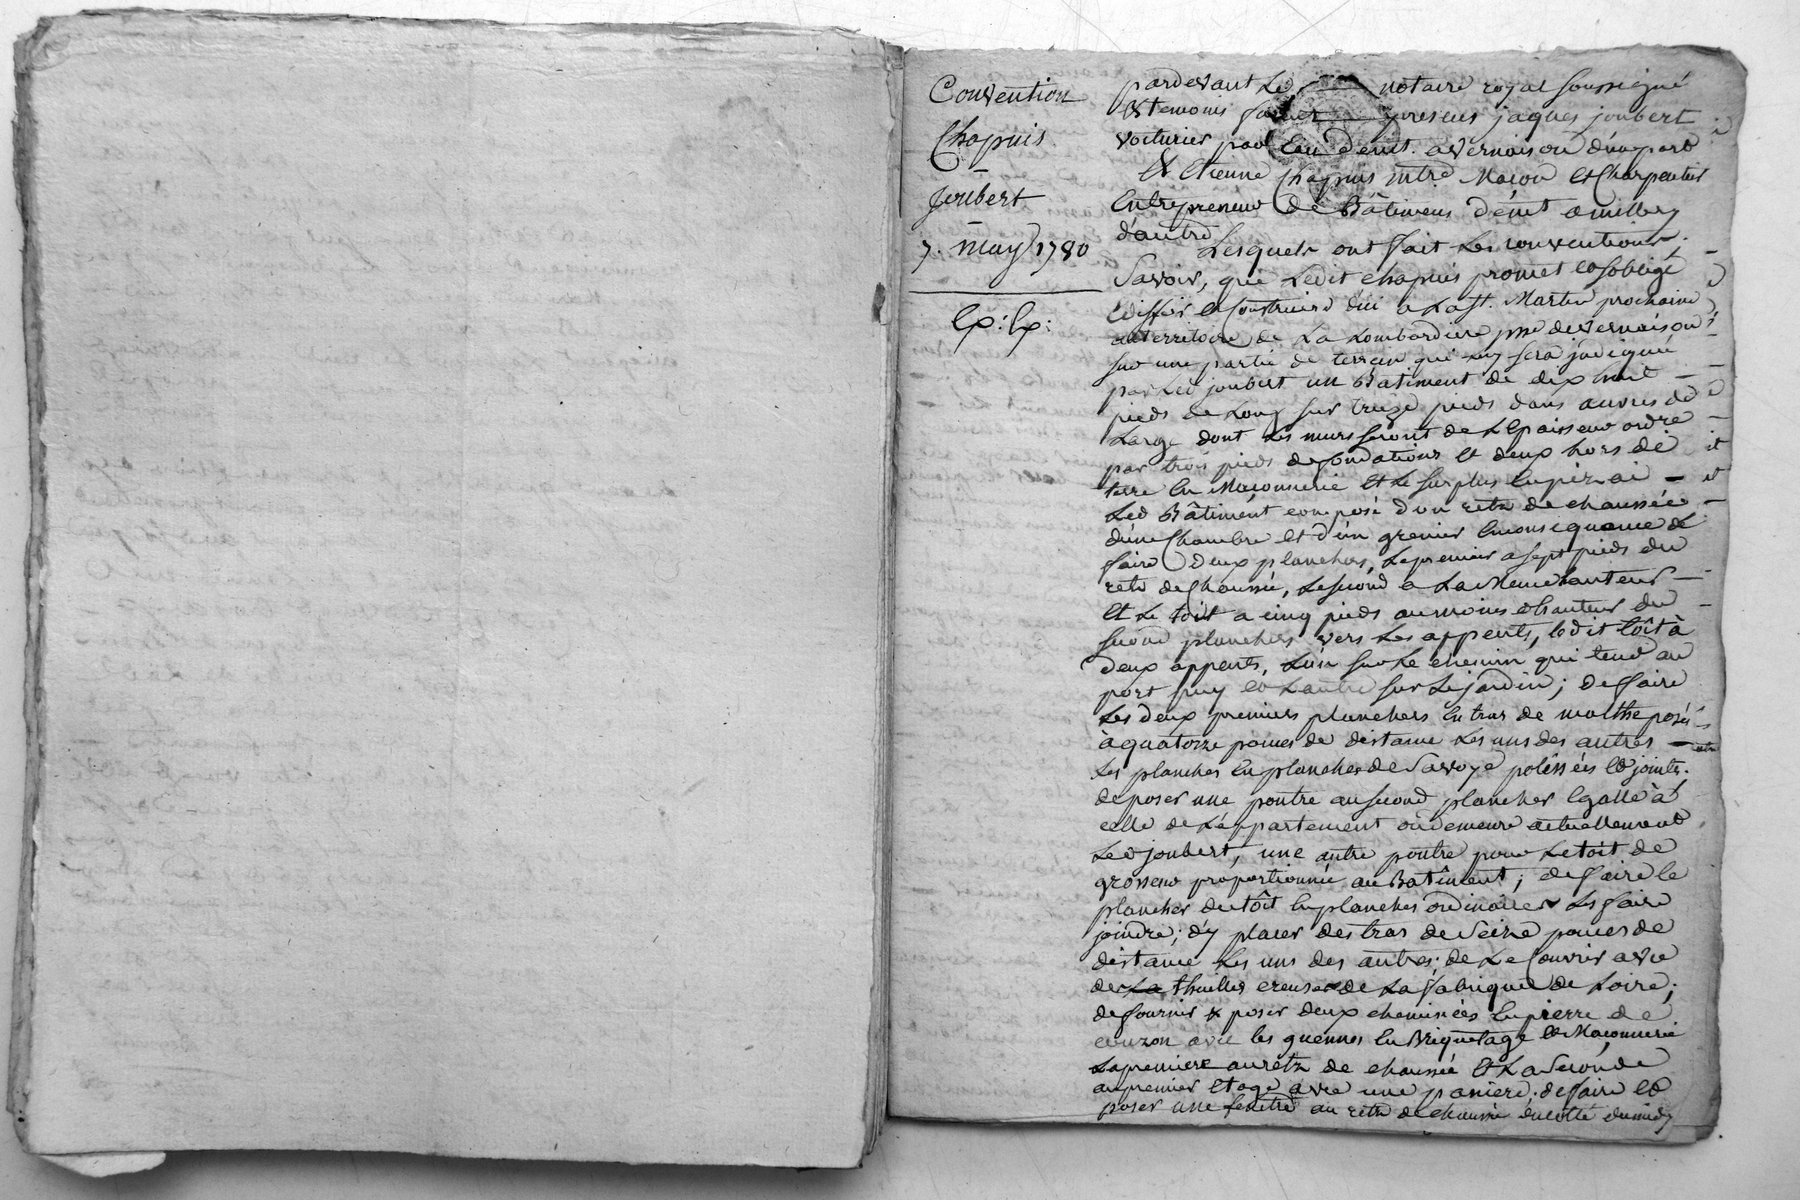 Convention
Chapuis
Joubert
7. may 1780
Ex: Ex:
pardevant Le notaire royal soussigné
& temoins furent presens jaques joubert
voiturier par Eau demt. a vernaison d'une part
Et Etienne Chapuis mtre Macon Et Charpentier
Entrepreneur de Bâtimens demt a millery
d'autre
Lesquels ont fait Les conventions
Savoir, que Ledit chapuis promet et soblige
Ediffier et Construire d'ici a La st. Martin prochaine
au territoire de La Lombardiere psse de vernaison
sur une partie de terrein qui luy sera indiquée
par Led joubert un Bâtiment de dix huit
pieds de Long sur treize pieds dans œuvres de
Large dont Les murs seront de L'Epaisseur ordre
par trois pieds de fondations et deux hors de
terre En Maconnerie Et Le surplus En pizai
Led Bâtiment composé d'un retz de chaussée
d'une Chambre et d'un grenier En consequence de
faire deux planchers, Le premier a sept pieds du
retz de Chaussée, Le second a La meme hauteur
Et Le toit a cinq pieds au moins d'hauteur du
second plancher vers Les appents, ledit toît à
deux appents, L'un sur Le chemin qui tend au
port et L'autre sur Le jardin; de faire
Les deux premiers planchers En tras de posés
à quatorze pouces de distance Les uns des autres
Les planches En planches de Savoye polissées et jointes.
de poser une poutre au second plancher Egalle à
celle de L'appartement où demeure actuellement
Led joubert, une autre poutre pour Le toit de
grosseur proportionnée au Batiment; de faire le
plancher du toît En planches ordinaires Les faire
joindre; d'y placer des tras de Seize pouces de
distance Les uns des autres; de Le Couvrir avec
de La thuilles creuse de La fabrique de Loire;
de fournir & poser deux cheminées En pierre de
couzon avec les guennes En Briquetage & Maconnerie
La premiere au retz de chaussée Et La Seconde
au premier Etage avec une paniere. de faire et
poser une fenêtre au retz de chaussée du cotté du midy